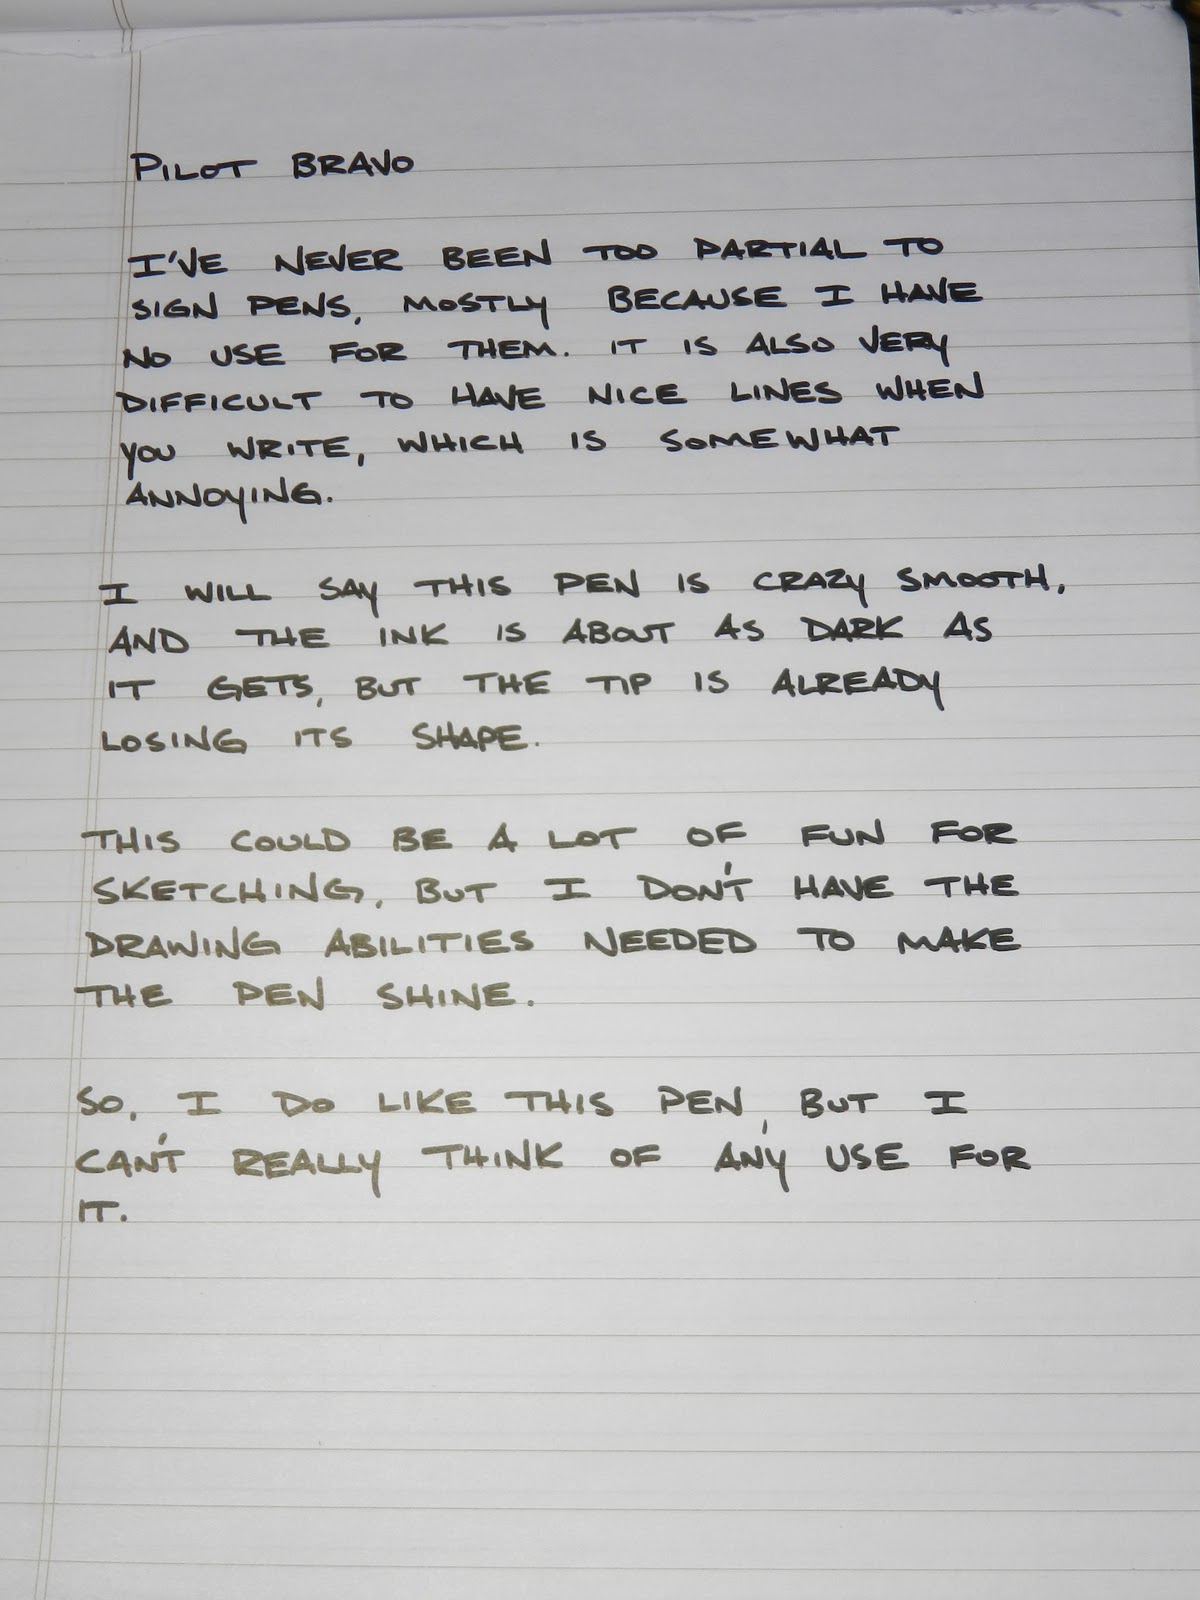 PILOT BRAVO
I'VE NEVER BEEN TOO PARTIAL TO
SIGN PENS, MOSTLY BECAUSE I HAVE
NO USE FOR THEM. IT IS ALSO VERY
DIFFICULT TO HAVE NICE LINES WHEN
YOU WRITE, WHICH IS SOMEWHAT
ANNOYING.
I WILL SAY THIS PEN IS CRAZY SMOOTH,
AND THE INK IS ABOUT AS DARK AS
IT GETS, BUT THE TIP IS ALREADY
LOSING ITS SHAPE.
THIS COULD BE A LOT OF FUN FOR
SKETCHING, BUT I DON'T HAVE THE
DRAWING ABILITIES NEEDED TO MAKE
THE PEN SHINE.
SO, I DO LIKE THIS PEN, BUT I
CAN'T REALLY THINK OF ANY USE FOR
IT.